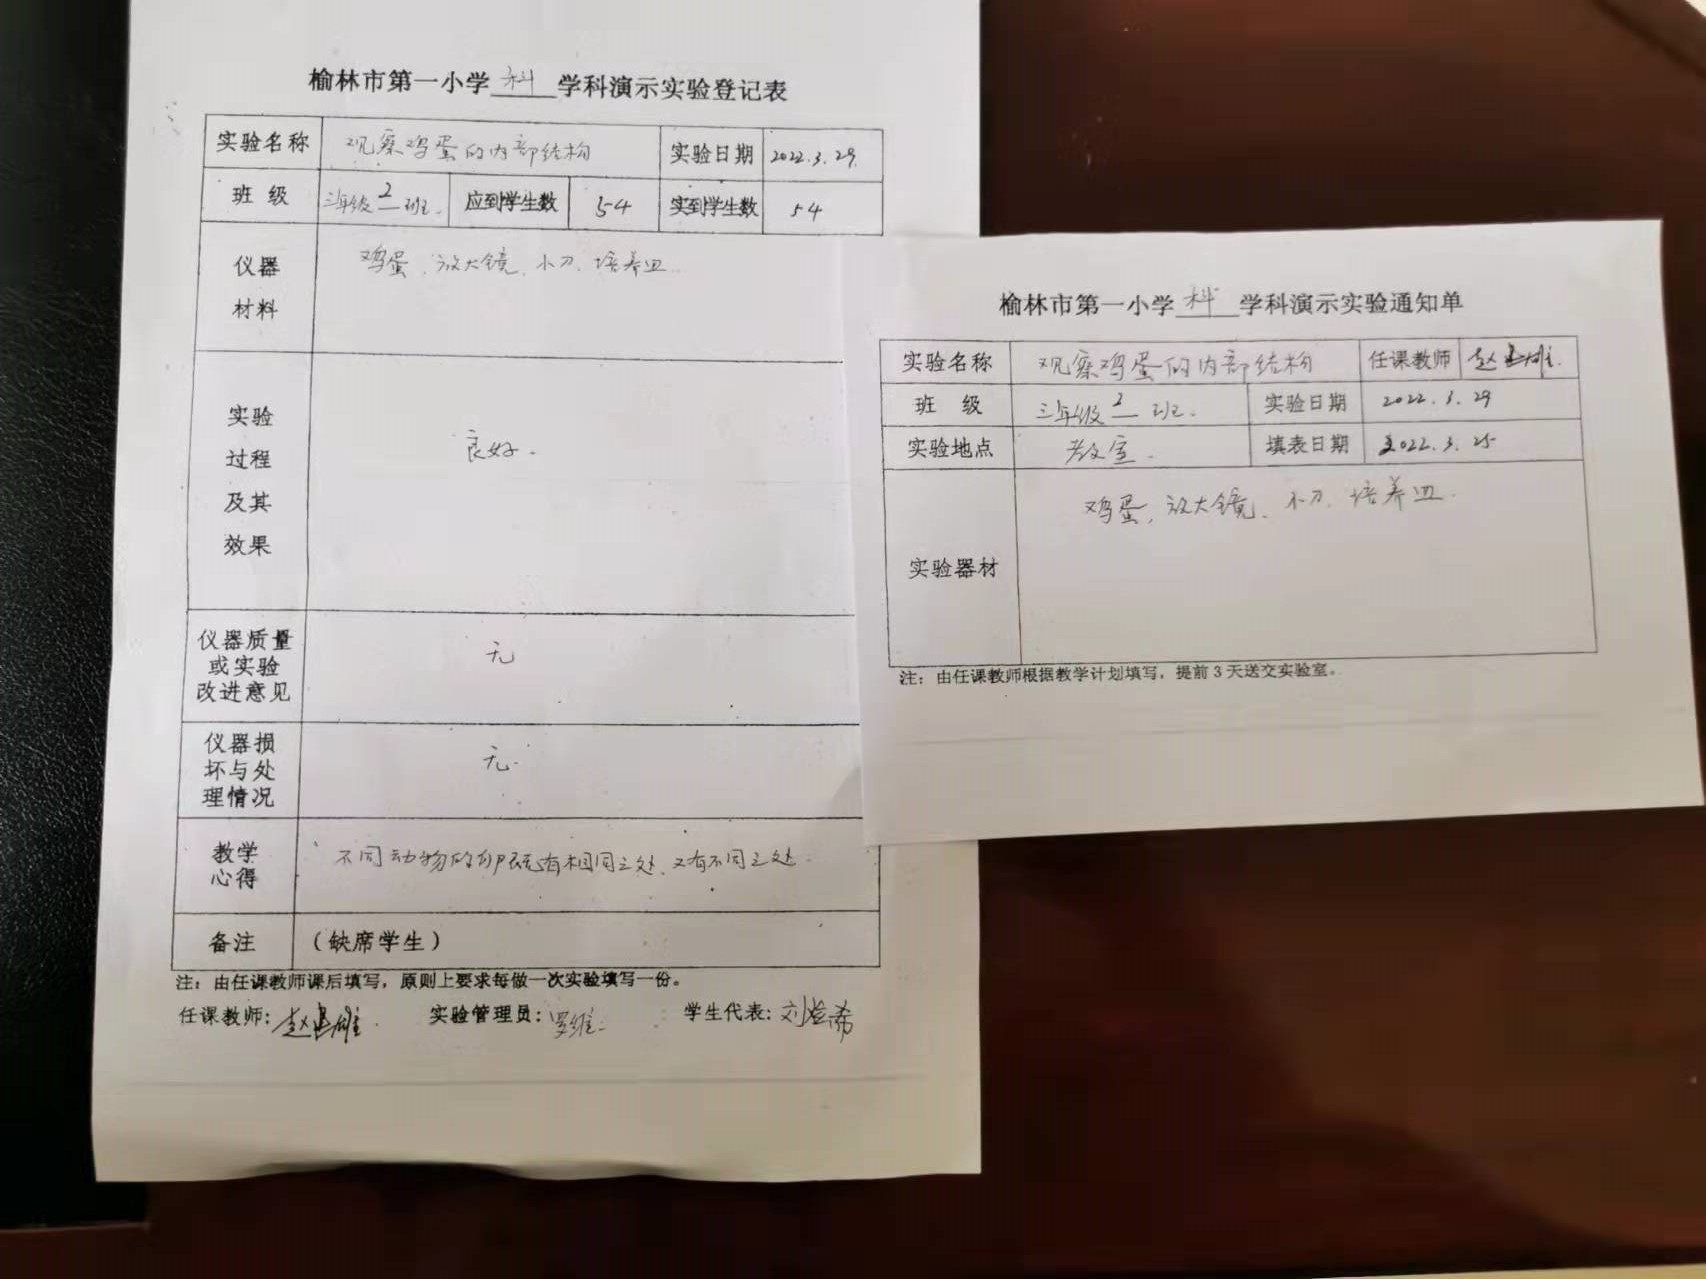 榆林市第一小学 科 学科演示实验登记表
实验名称 观察鸡蛋的内部结构 实验日期 2022.3.29.
班 级 三年级 2 班. 应到学生数 54 实到学生数 54
仪器 鸡蛋、放大镜、小刀、培养皿
材料
实验
过程 良好.
及其
效果
仪器质量
或实验 无
改进意见
仪器损
坏与处 无.
理情况
教学 不同动物的卵既有相同之处、又有不同之处.
心得
备注 (缺席学生)
注：由任课教师课后填写，原则上要求每做一次实验填写一份。
任课教师: 赵建雄. 实验管理员: 罗维 学生代表: 刘登希
榆林市第一小学 科 学科演示实验通知单
实验名称 观察鸡蛋的内部结构 任课教师 赵建雄.
班 级 三年级 2 班. 实验日期 2022.3.29
实验地点 教室. 填表日期 2022.3.25
鸡蛋, 放大镜、小刀、培养皿.
实验器材
注：由任课教师根据教学计划填写，提前3天送交实验室。